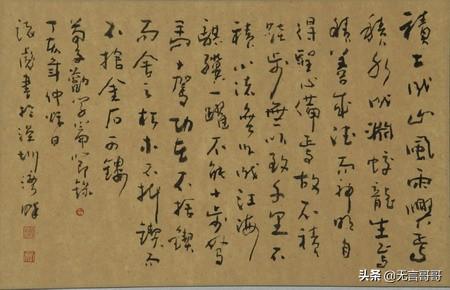 積土成山風雨興焉
積水成淵蛟龍生焉
積善成德而神明自
得聖心備焉故不積
跬步無以致千里不
積小流無以成江海
騏驥一躍不能十步駑
馬十駕功在不捨鍥
而舍之朽木不折鍥而
不捨金石可鏤
荀子勸學篇節錄
丁亥年仲秋日
書於深圳灣畔
头条 @无言哥哥